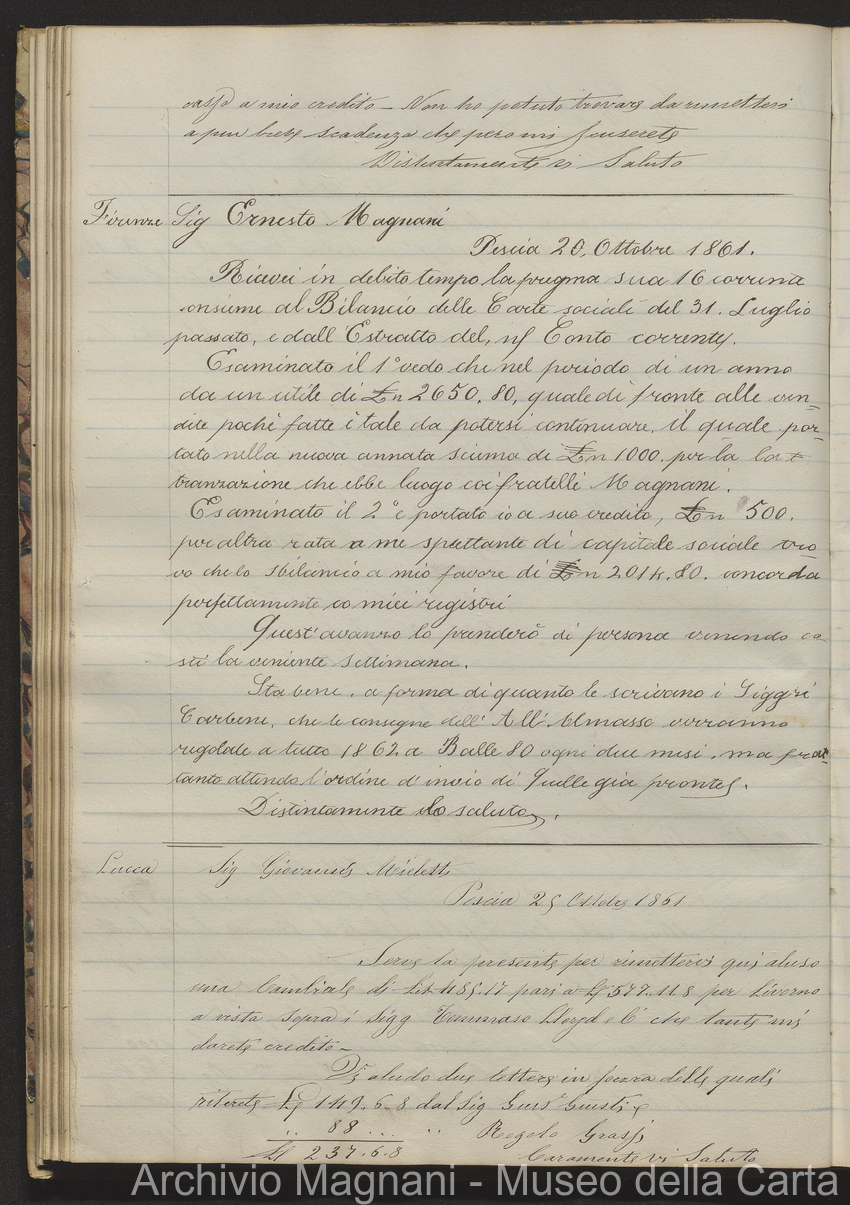 a mio credito – Non ho potuto trovare da rimettervi
a piu breve scadenza che pero mi scuserete
Distintamente vi Saluto
Firenze Sig Ernesto Magnani
Pescia 20, Ottobre 1861.
Riavei in debito tempo la pregma sua 16 corrente
insieme al Bilancio delle Carte sociali del 31. Luglio
passato, e dall'Estratto del, Conto corrente.
Esaminato il 1° vedo che nel periodo di un anno
da un utile di £n 2650,80, quale di fronte alle ven-
dite poche fatte è tale da potersi continuare, il quale por-
tato nella nuova annata scema di £n 1000. per la
tranzazione che ebbe luogo coi fratelli Magnani.
Esaminato il 2° e portato io a suo credito, £n 500.
per altra rata a me spettante di capitale sociale tro-
vo che lo sbilancio a mio favore di £n 2014,80. concorda
perfettamente co miei registri
Quest'avanzo lo prenderò di persona venendo co
stì la veniente settimana.
Sta bene, a forma di quanto le scrivano i Siggri
Carbene, che le consegne dell' All' Almasso verranno
regolate a tutto 1862. a Balle 80 ogni due mesi, ma frat-
tanto attendo l'ordine d'invio di Quelle gia pronte.
Distintamente lo saluto.
Lucca Sig Giovanni
Pescia 25 Ottobre 1861
Serve la presente per rimettervi qui
una Cambiale di 485.17 pari a 577.11.8 per Livorno
a vista sopra i Sigg Tommaso Lloyd e C che tante mi
darete credito –
Vi acludo due lettere in forza delle quali
ritirete 149.6.8 dal Sig Gius Giusti e
.. 88 ... .. Regolo Grassi
237.6.8 Caramente vi Saluto
Archivio Magnani - Museo della Carta